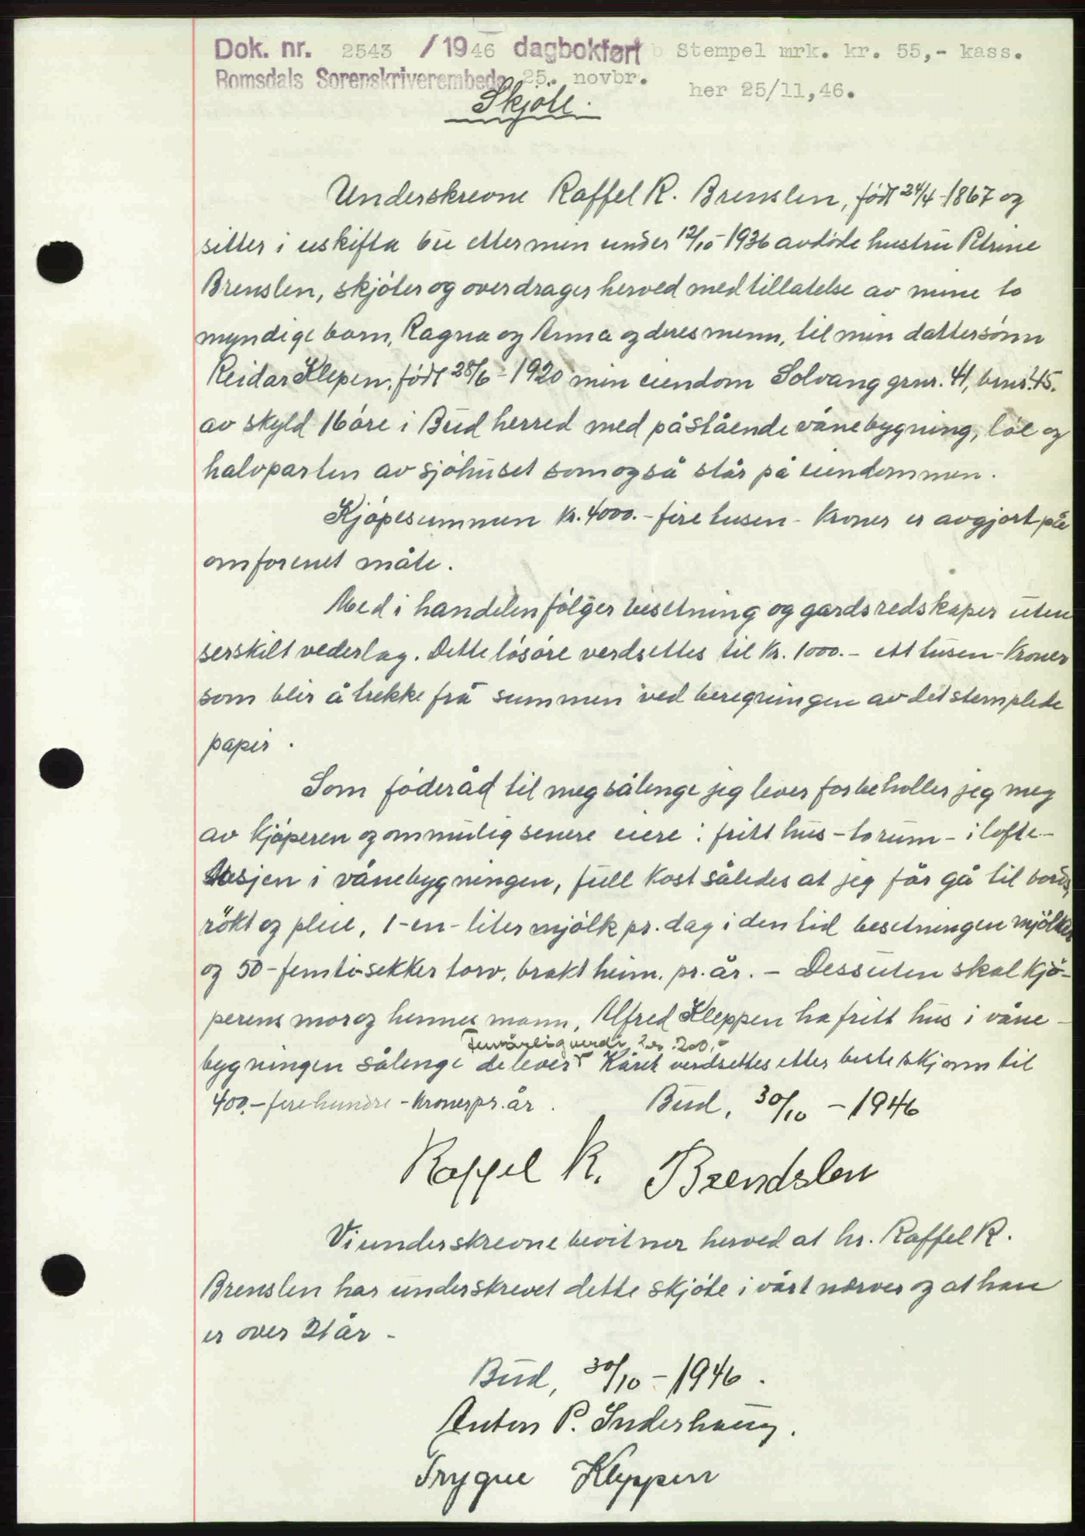 Dok. nr. 2543 / 1946 dagbokført b Stempel mrk. kr. 55,- kass.
Romsdals Sorenskriverembede 25. novbr. her 25/11,46.
Skjöte.
Underskrevne Raffel R. Brenslen, født 24/4-1867 og
sitter i uskifta bu etter min under 12/10-1936 avdöde hustru Petrine
Brenslen, skjöter og overdrager herved med tillatelse av mine to
myndige barn, Ragna og Anna og deres menn, til min dattersönn
Reidar Klepen, født 28/6-1920 min eiendom Solvang grnr. 41, brnr. 45.
av skyld 16 öre i Bud herred med påstående vånebygning, löe og
halvparten av sjöhuset som også står på eiendommen.
Kjöpesummen kr. 4000.- fire tusen - kroner er avgjort på
omforenet måte.
Med i handelen fölger besetning og gardsredskaper uten
serskilt vederlag. Dette lösöre verdsettes til kr. 1000.- ett tusen - kroner
som blir å trekke frå summen ved beregningen av det stemplede
papir.
Som föderåd til meg sålenge jeg lever forbeholler jeg meg
av kjöperen og ommulig senere eiere: fritt hus - to rum - i lofte-
tasjen i vånebygningen, full kost således at jeg får gå til bords,
rökt og pleie, 1-en-liter mjölk pr. dag i den tid besetningen mjölker
og 50-femti-sekker torv, brakt heim. pr. år. - Dessuten skal kjö-
perens mor og hennes mann, Alfred Kleppen ha fritt hus i våne-
bygningen sålenge de lever Femårlig verdi kr. 200,- Kåret verdsettes etter beste skjönn til
400.- fire hundre - kroner pr. år. Bud, 30/10 - 1946
Raffel R. Brendslen
Vi underskrevne bevitner herved at hr. Raffel R.
Brenslen har underskrevet dette skjöte i vårt nærver og at han
er over 21 år -
Bud, 30/10 - 1946.
Anton P. Inderhaug.
Trygve Kleppen